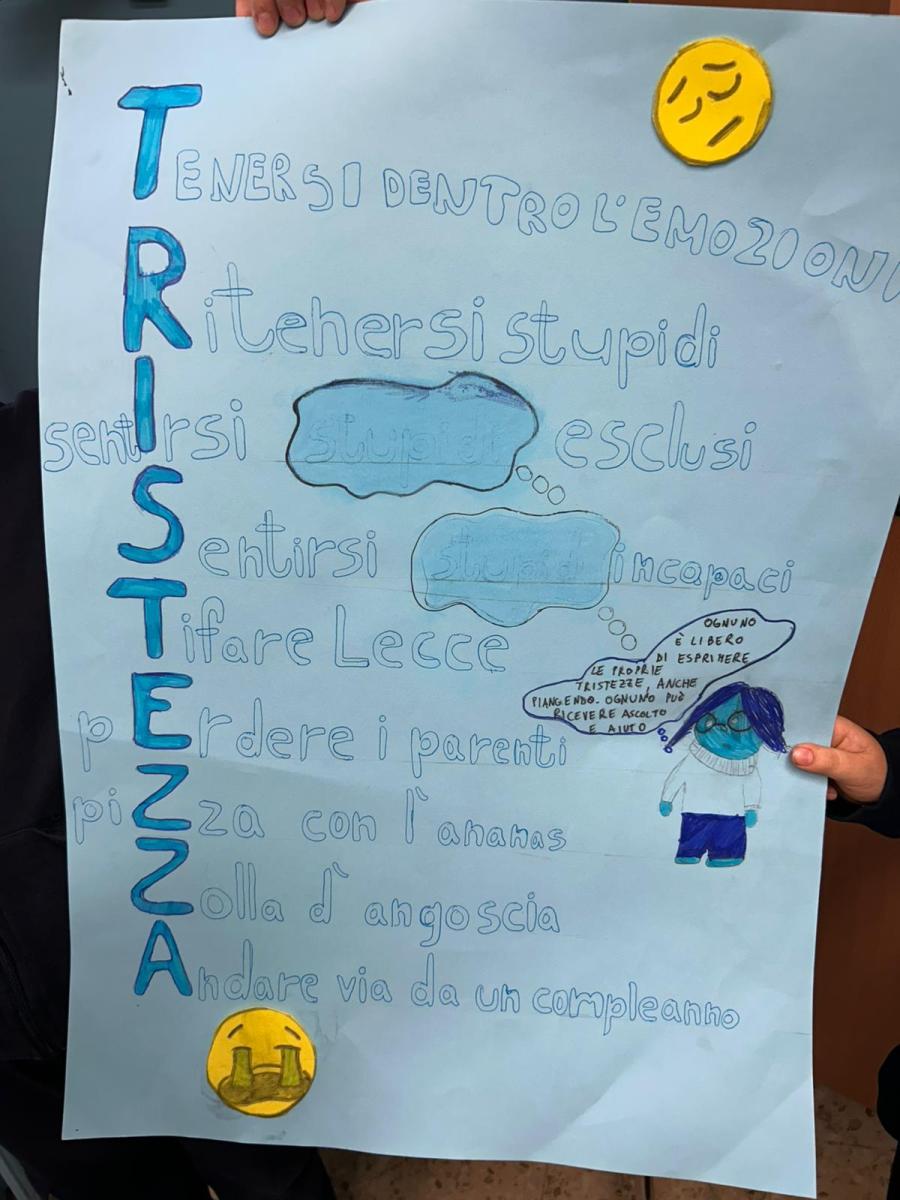 TENERSI DENTRO L'EMOZIONI
Ritenersi stupidi
sentIrsi stupidi esclusi
Sentirsi stupidi incapaci
Tifare Lecce
pErdere i parenti
piZza con l'ananas
Zolla d'angoscia
Andare via da un compleanno
OGNUNO
È LIBERO
DI ESPRIMERE
LE PROPRIE
TRISTEZZE, ANCHE
PIANGENDO. OGNUNO PUÒ
RICEVERE ASCOLTO
E AIUTO